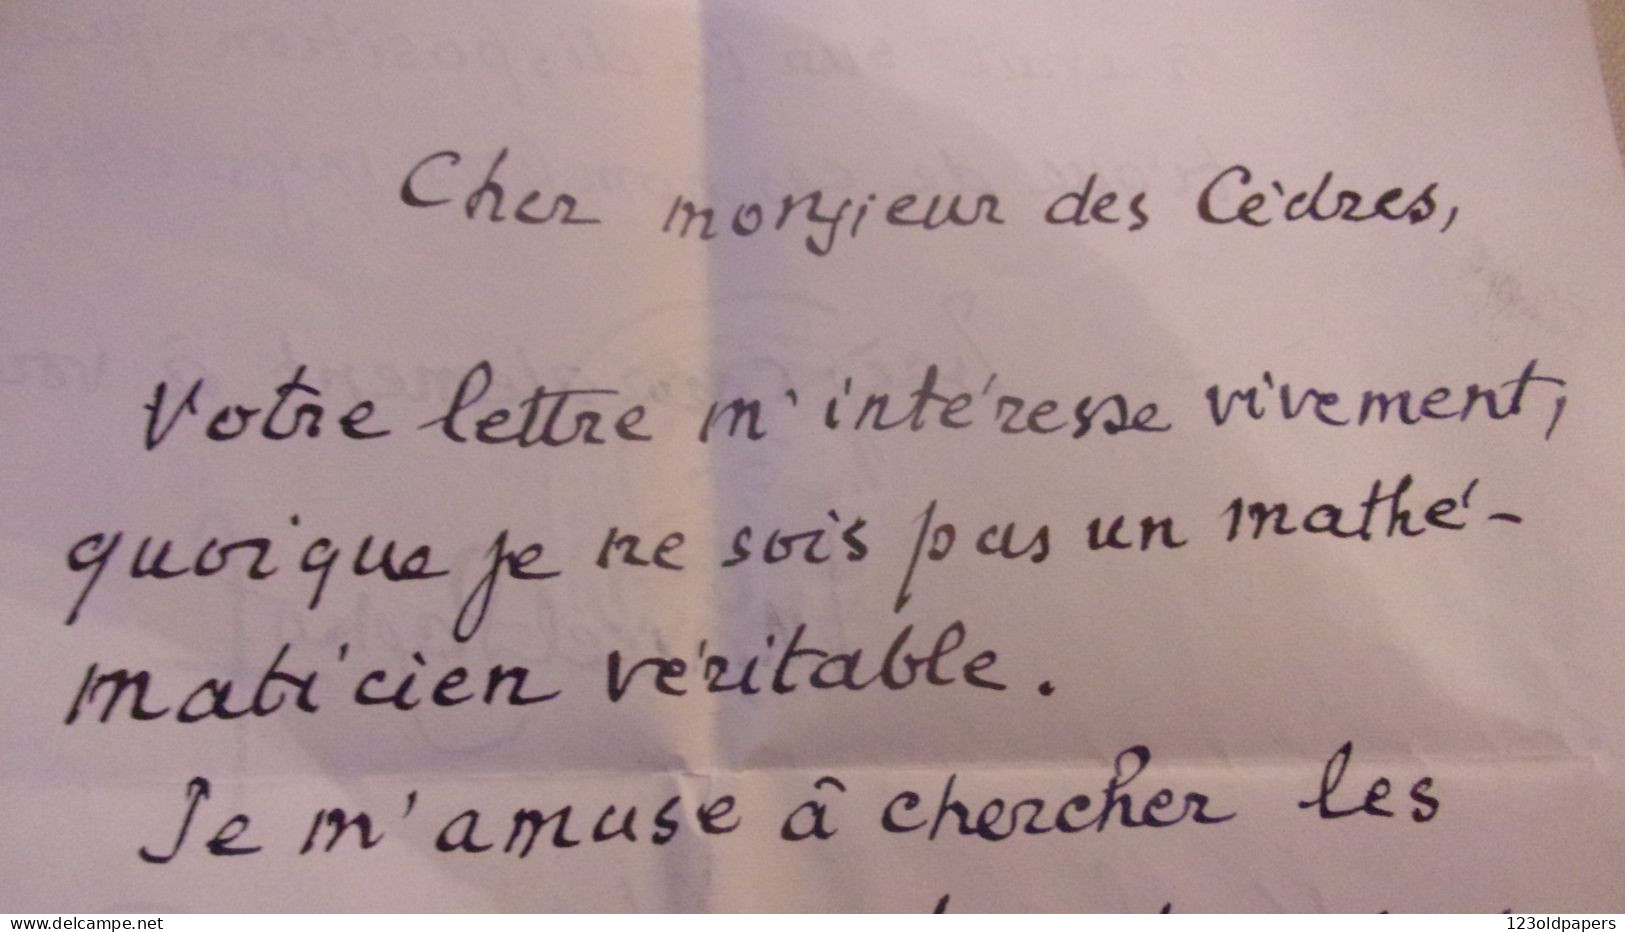 Cher monsieur des Cèdres,
Votre lettre m'intéresse vivement,
quoique je ne sois pas un mathé-
maticien véritable.
Je m'amuse à chercher les
delcampe.net
123oldpapers